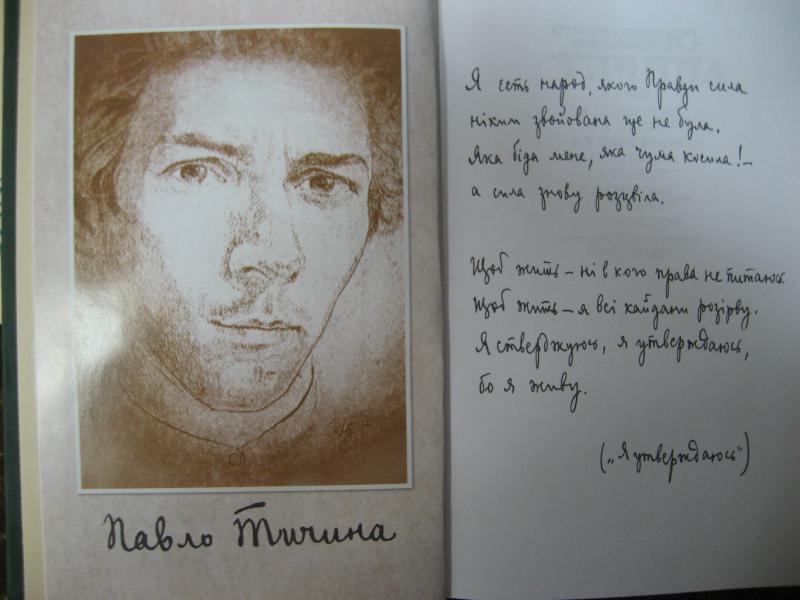 Павло Тичина
Я єсть народ, якого Правди сила
ніким звойована ще не була.
Яка біда мене, яка чума косила! –
а сила знову розцвіла.
Щоб жить – ні в кого права не питаюсь.
Щоб жить – я всі кайдани розірву.
Я стверджуюсь, я утверждаюсь,
бо я живу.
(„Я утверждаюсь")